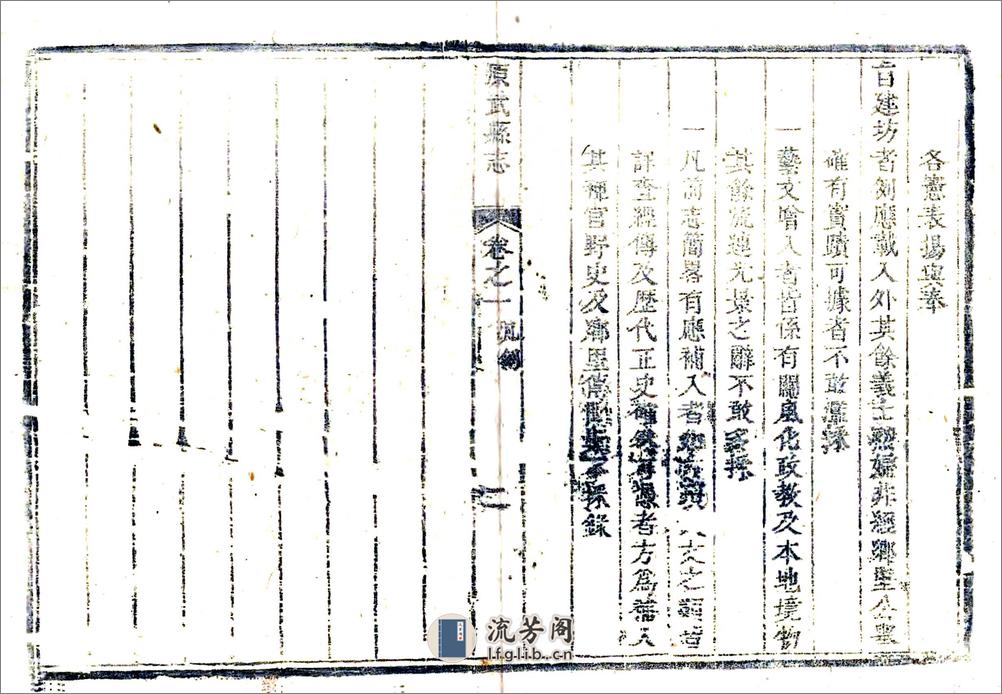 各憲表揚與奉
旨建坊者例應載入外其餘義士烈婦非經鄉里公舉
確有實蹟可據者不敢濫採
一藝文會入者皆係有關風化政教及本地境物
其餘流連光景之辭不敢多採
一凡前志簡畧有應補入者 人文之類皆
詳查經傳及歷代正史確然有憑者方為補入
其稗官野史及鄉里傳聞 採錄
原武縣志
卷之一
凡例
二
流芳阁
lfglib.cn